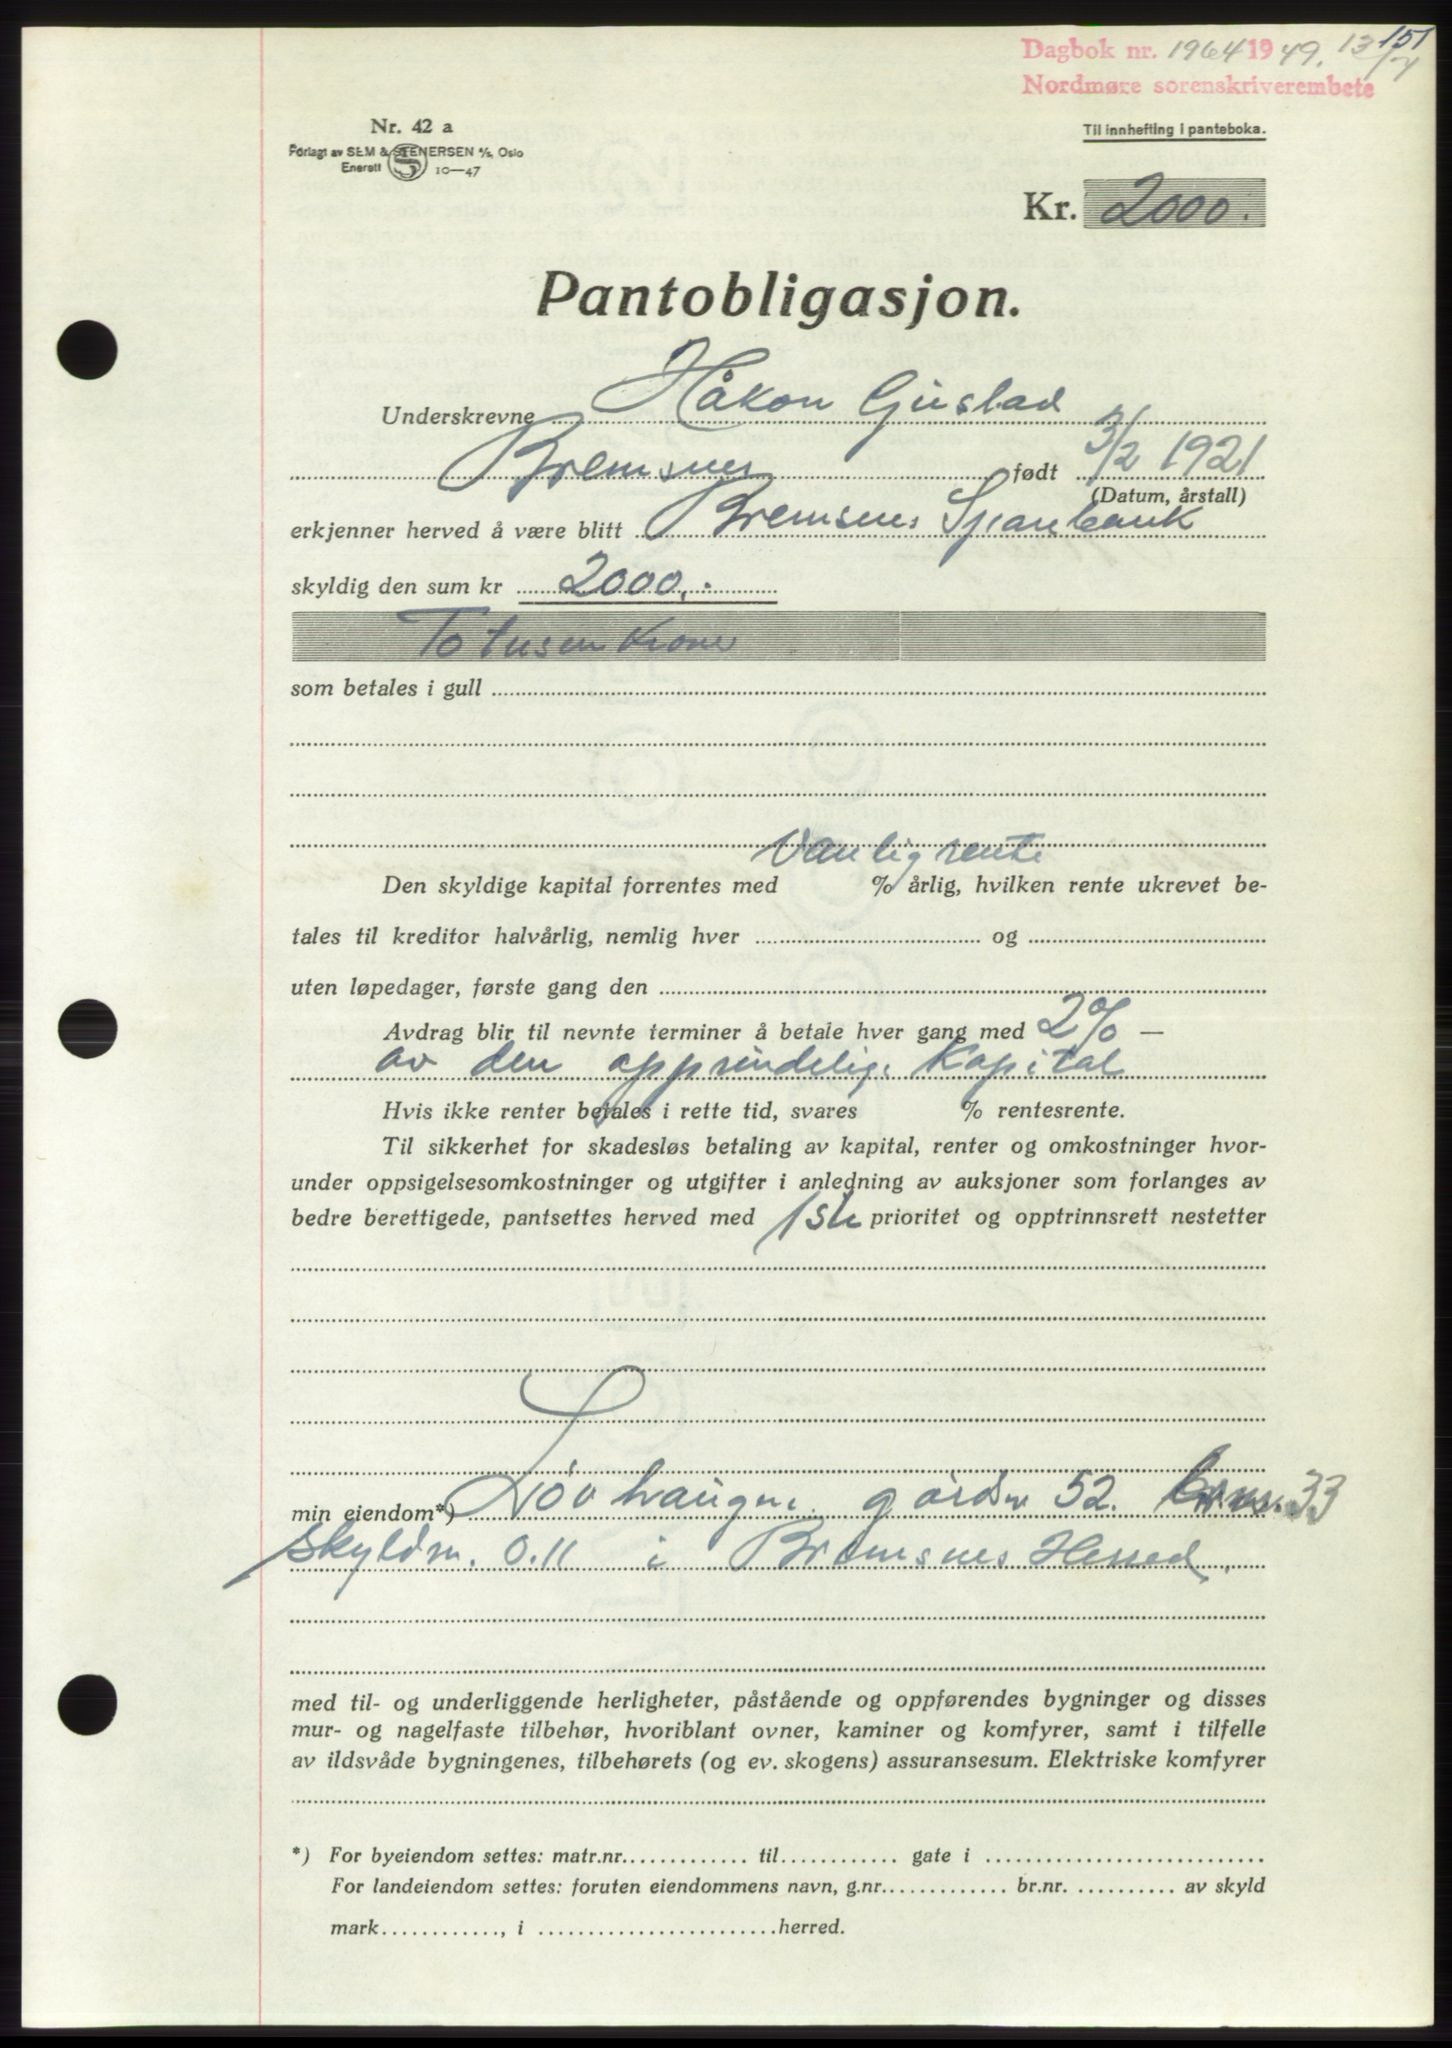 151
Dagbok nr. 1964 1949. 13/7
Nordmøre sorenskriverembete
Nr. 42 a
Forlagt av SEM & STENERSEN A/S, Oslo
Enerett S 10—47
Til innhefting i panteboka.
Kr. 2000.
Pantobligasjon.
Underskrevne Håkon Gustad
Bremsnes født 3/2 1921
(Datum, årstall)
erkjenner herved å være blitt Bremsnes Sparebank
skyldig den sum kr 2000,-
To tusen kroner
som betales i gull
Vanlig rente
Den skyldige kapital forrentes med % årlig, hvilken rente ukrevet be-
tales til kreditor halvårlig, nemlig hver og
uten løpedager, første gang den
Avdrag blir til nevnte terminer å betale hver gang med 2% —
av den opprindelig. Kapital
Hvis ikke renter betales i rette tid, svares % rentesrente.
Til sikkerhet for skadesløs betaling av kapital, renter og omkostninger hvor-
under oppsigelsesomkostninger og utgifter i anledning av auksjoner som forlanges av
bedre berettigede, pantsettes herved med 1ste prioritet og opptrinnsrett nestetter
min eiendom*) Løvhaugen gårdsnr 52. br.nr. 33
skyldm. 0.11 i Bremsnes Herred.
med til- og underliggende herligheter, påstående og oppførendes bygninger og disses
mur- og nagelfaste tilbehør, hvoriblant ovner, kaminer og komfyrer, samt i tilfelle
av ildsvåde bygningenes, tilbehørets (og ev. skogens) assuransesum. Elektriske komfyrer
*) For byeiendom settes: matr.nr. til gate i
For landeiendom settes: foruten eiendommens navn, g.nr. br.nr. av skyld
mark , i herred.